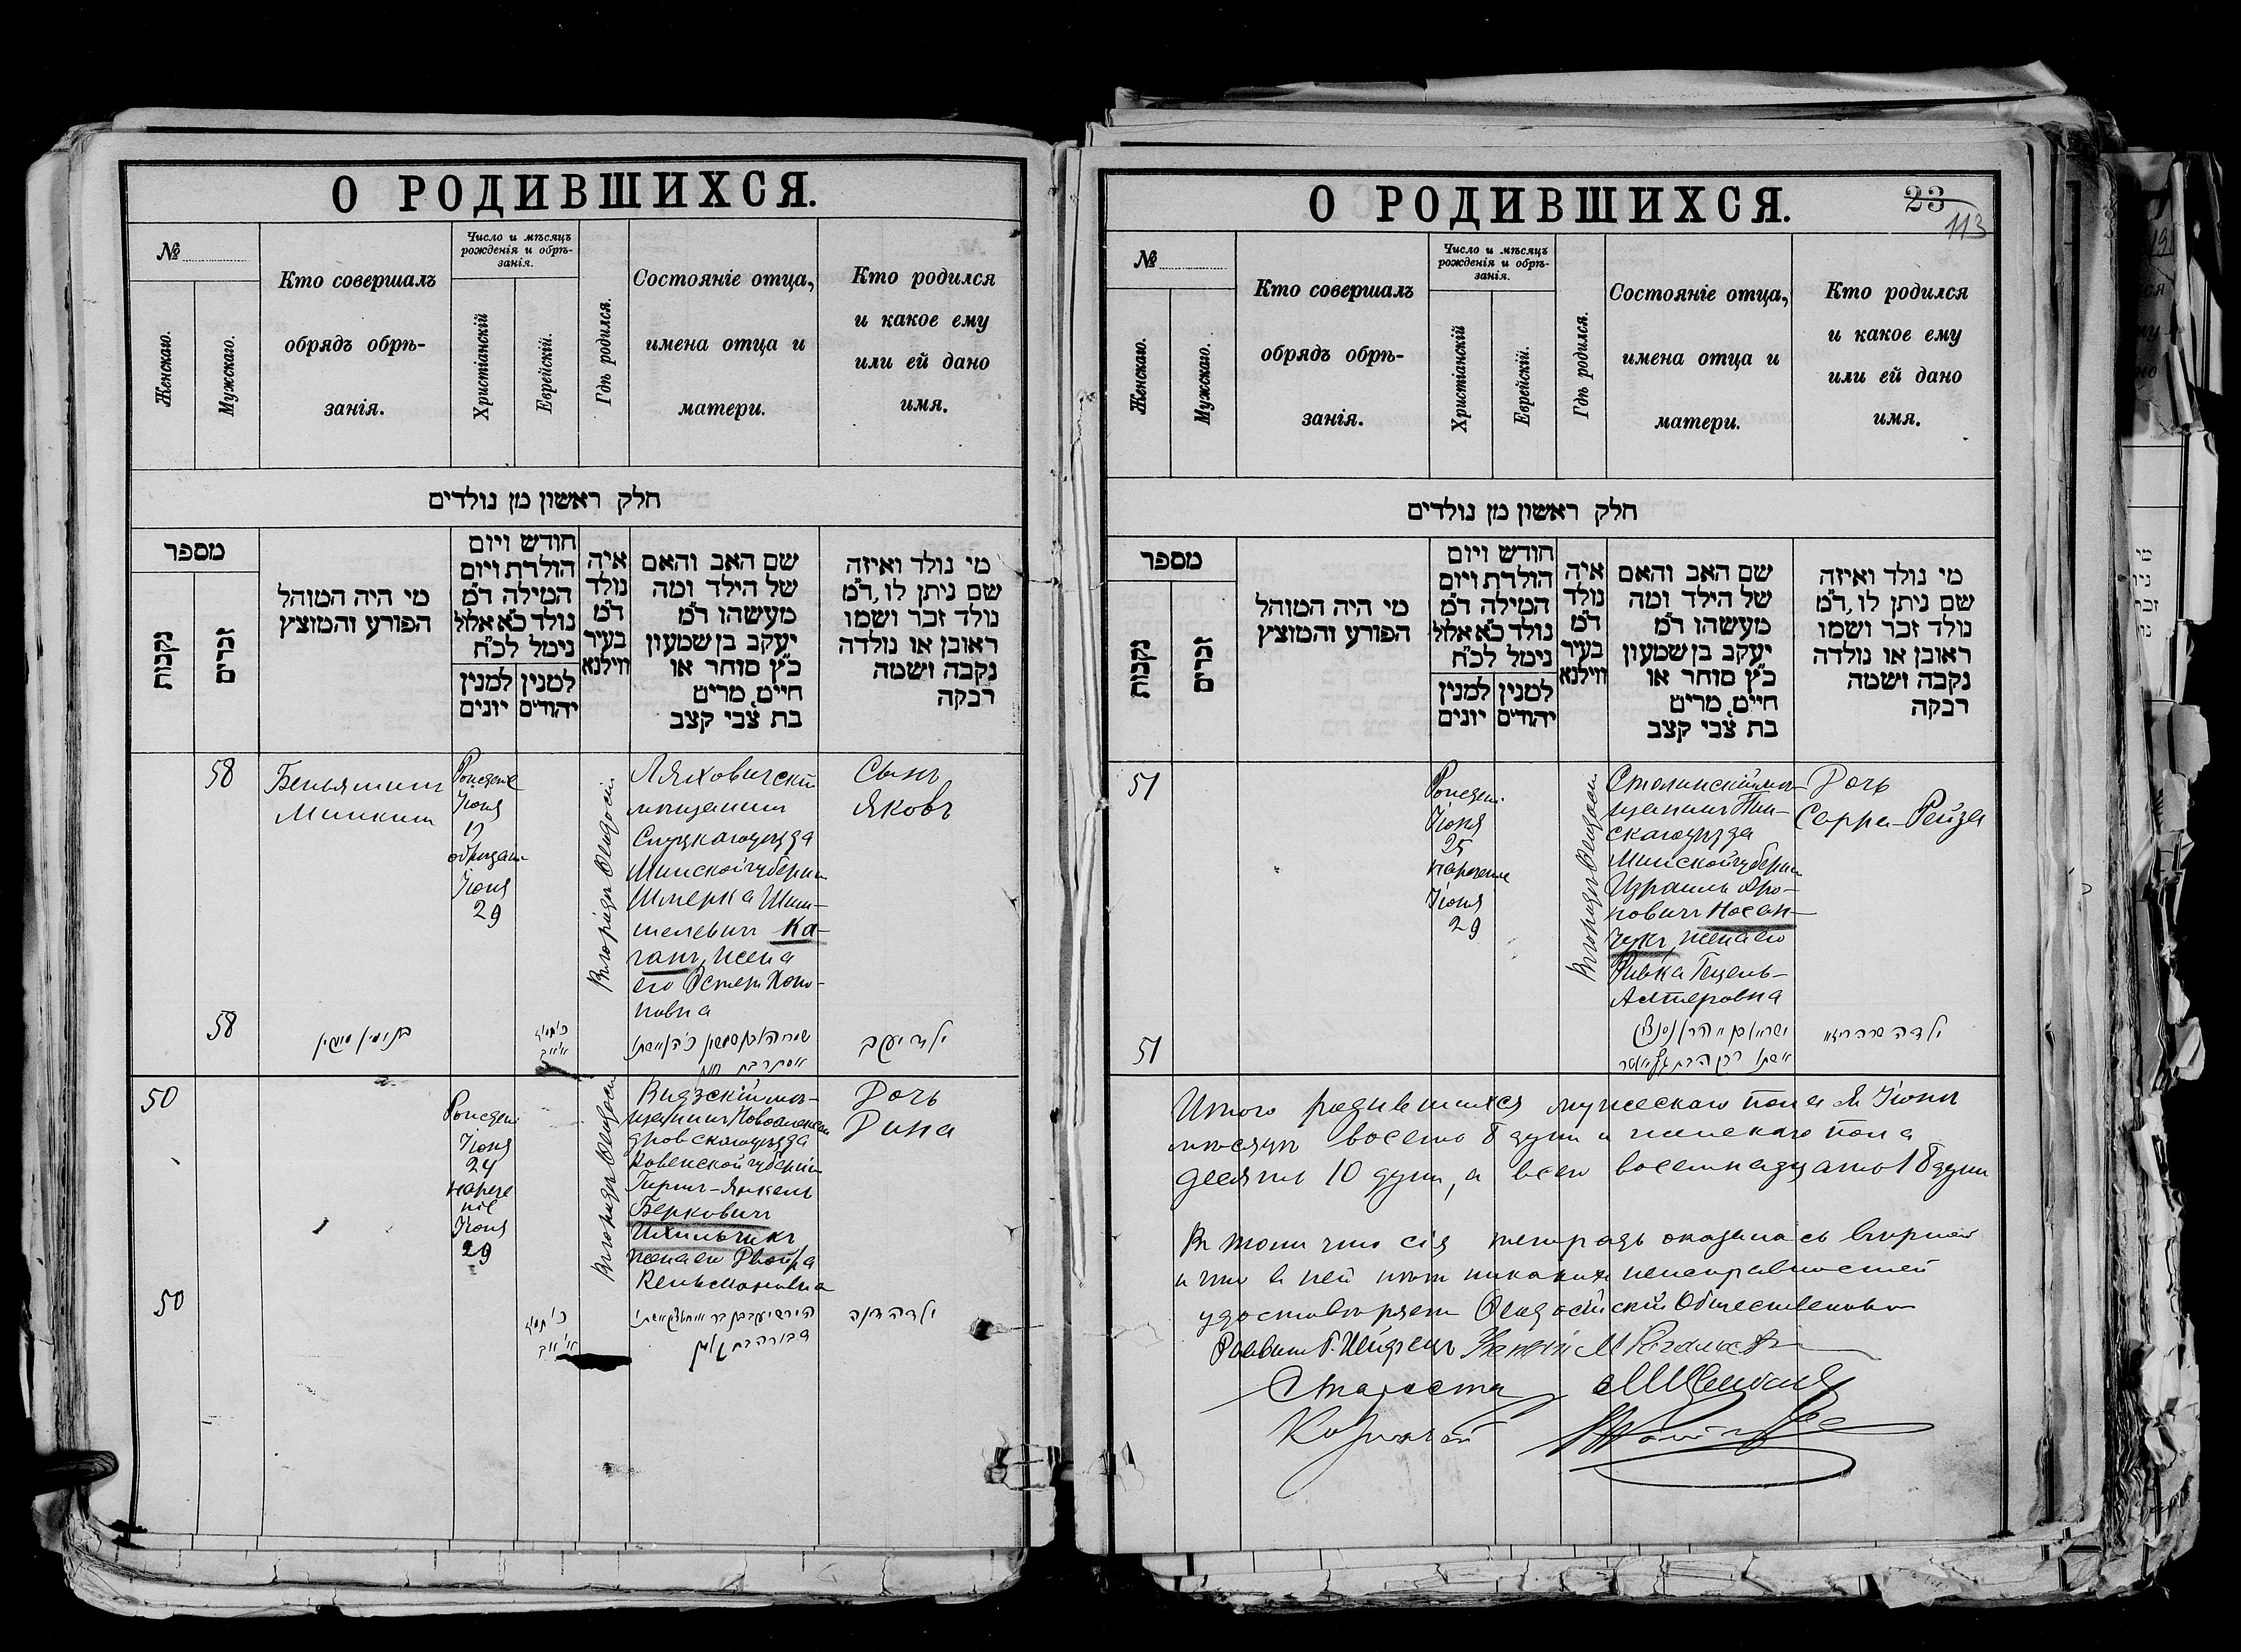 О РОДИВШИХСЯ.
№
Женскаго.
Мужскаго.
Кто совершалъ
обрядъ обрѣ-
занія.
Число и мѣсяцъ
рожденія и обрѣ-
занія.
Христіанскій
Еврейскій.
Гдѣ родился.
Состояніе отца,
имена отца и
матери.
Кто родился
и какое ему
или ей дано
имя.
חלק ראשון מן נולדים
מספר
נקבות
זכרים
מי היה המוהל
הפורע והמוצץ
חודש ויום
הולדת ויום
המילה ד״מ
נולד כ״א אלול
נימל לכ״ח
למנין
יונים
למנין
יהודים
איה
נולד
ד״מ
בעיר
ווילנא
שם האב והאם
של הילד ומה
מעשהו ד״מ
יעקב בן שמעון
כ״ץ סוחר או
חיים, מרים
בת צבי קצב
מי נולד ואיזה
שם ניתן לו, ד״מ
נולד זכר ושמו
ראובן או נולדה
נקבה ושמה
רבקה
58
Беньяминъ
Минкинъ
Іюня
17
Іюня
29
Въ городѣ Ѳеодосіи
Ляховичскій
мѣщанинъ
Слуцкаго уѣзда
Минской губерніи
Шмерка Шим-
шелевичъ Ка-
ганъ, жена
его Эстеръ Хоно-
новна
Сынъ
Яковъ
58
ילד יעקב
50
Іюня
24
нарече
ніе
Іюня
29
Въ городѣ Ѳеодосіи
Видзскій мѣ-
щанинъ Новоалексан
дровскаго уѣзда
Ковенской губерніи
Гиршъ-Янкель
Берковичъ
Ихильчикъ
жена его Двойра
Дочь
Дина
50
ילדה דינה
О РОДИВШИХСЯ.
23
113
№
Женскаго.
Мужскаго.
Кто совершалъ
обрядъ обрѣ-
занія.
Число и мѣсяцъ
рожденія и обрѣ-
занія.
Христіанскій
Еврейскій.
Гдѣ родился.
Состояніе отца,
имена отца и
матери.
Кто родился
и какое ему
или ей дано
имя.
חלק ראשון מן נולדים
מספר
נקבות
זכרים
מי היה המוהל
הפורע והמוצץ
חודש ויום
הולדת ויום
המילה ד״מ
נולד כ״א אלול
נימל לכ״ח
למנין
יונים
למנין
יהודים
איה
נולד
ד״מ
בעיר
ווילנא
שם האב והאם
של הילד ומה
מעשהו ד״מ
יעקב בן שמעון
כ״ץ סוחר או
חיים, מרים
בת צבי קצב
מי נולד ואיזה
שם ניתן לו, ד״מ
נולד זכר ושמו
ראובן או נולדה
נקבה ושמה
רבקה
51
Іюня
25
нареченіе
Іюня
29
Въ городѣ Ѳеодосіи
Столинскій мѣ-
щанинъ Пин-
скаго уѣзда
Минской губерніи
Израиль Аро-
новичъ Носан-
чукъ, жена его
Ривка Гецель-
Алтеровна
Дочь
Сарра-Рейза
51
ילדה שרה רייזא
Итого родившихся мужескаго пола въ Іюнѣ
мѣсяцѣ восемь 8 душъ и женскаго пола
десять 10 душъ, а всего восемнадцать 18 душъ
Въ томъ что сія тетрадь оказалась вѣрной
и что въ ней нѣтъ никакихъ неисправностей
удостовѣряетъ Ѳеодосійскій Общественный
Раввинъ
Староста
Казначей